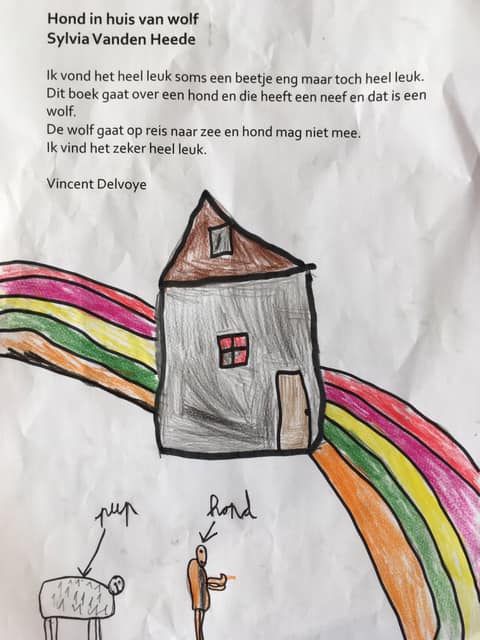 Hond in huis van wolf
Sylvia Vanden Heede
Ik vond het heel leuk soms een beetje eng maar toch heel leuk.
Dit boek gaat over een hond en die heeft een neef en dat is een
wolf.
De wolf gaat op reis naar zee en hond mag niet mee.
Ik vind het zeker heel leuk.
Vincent Delvoye
pup
hond